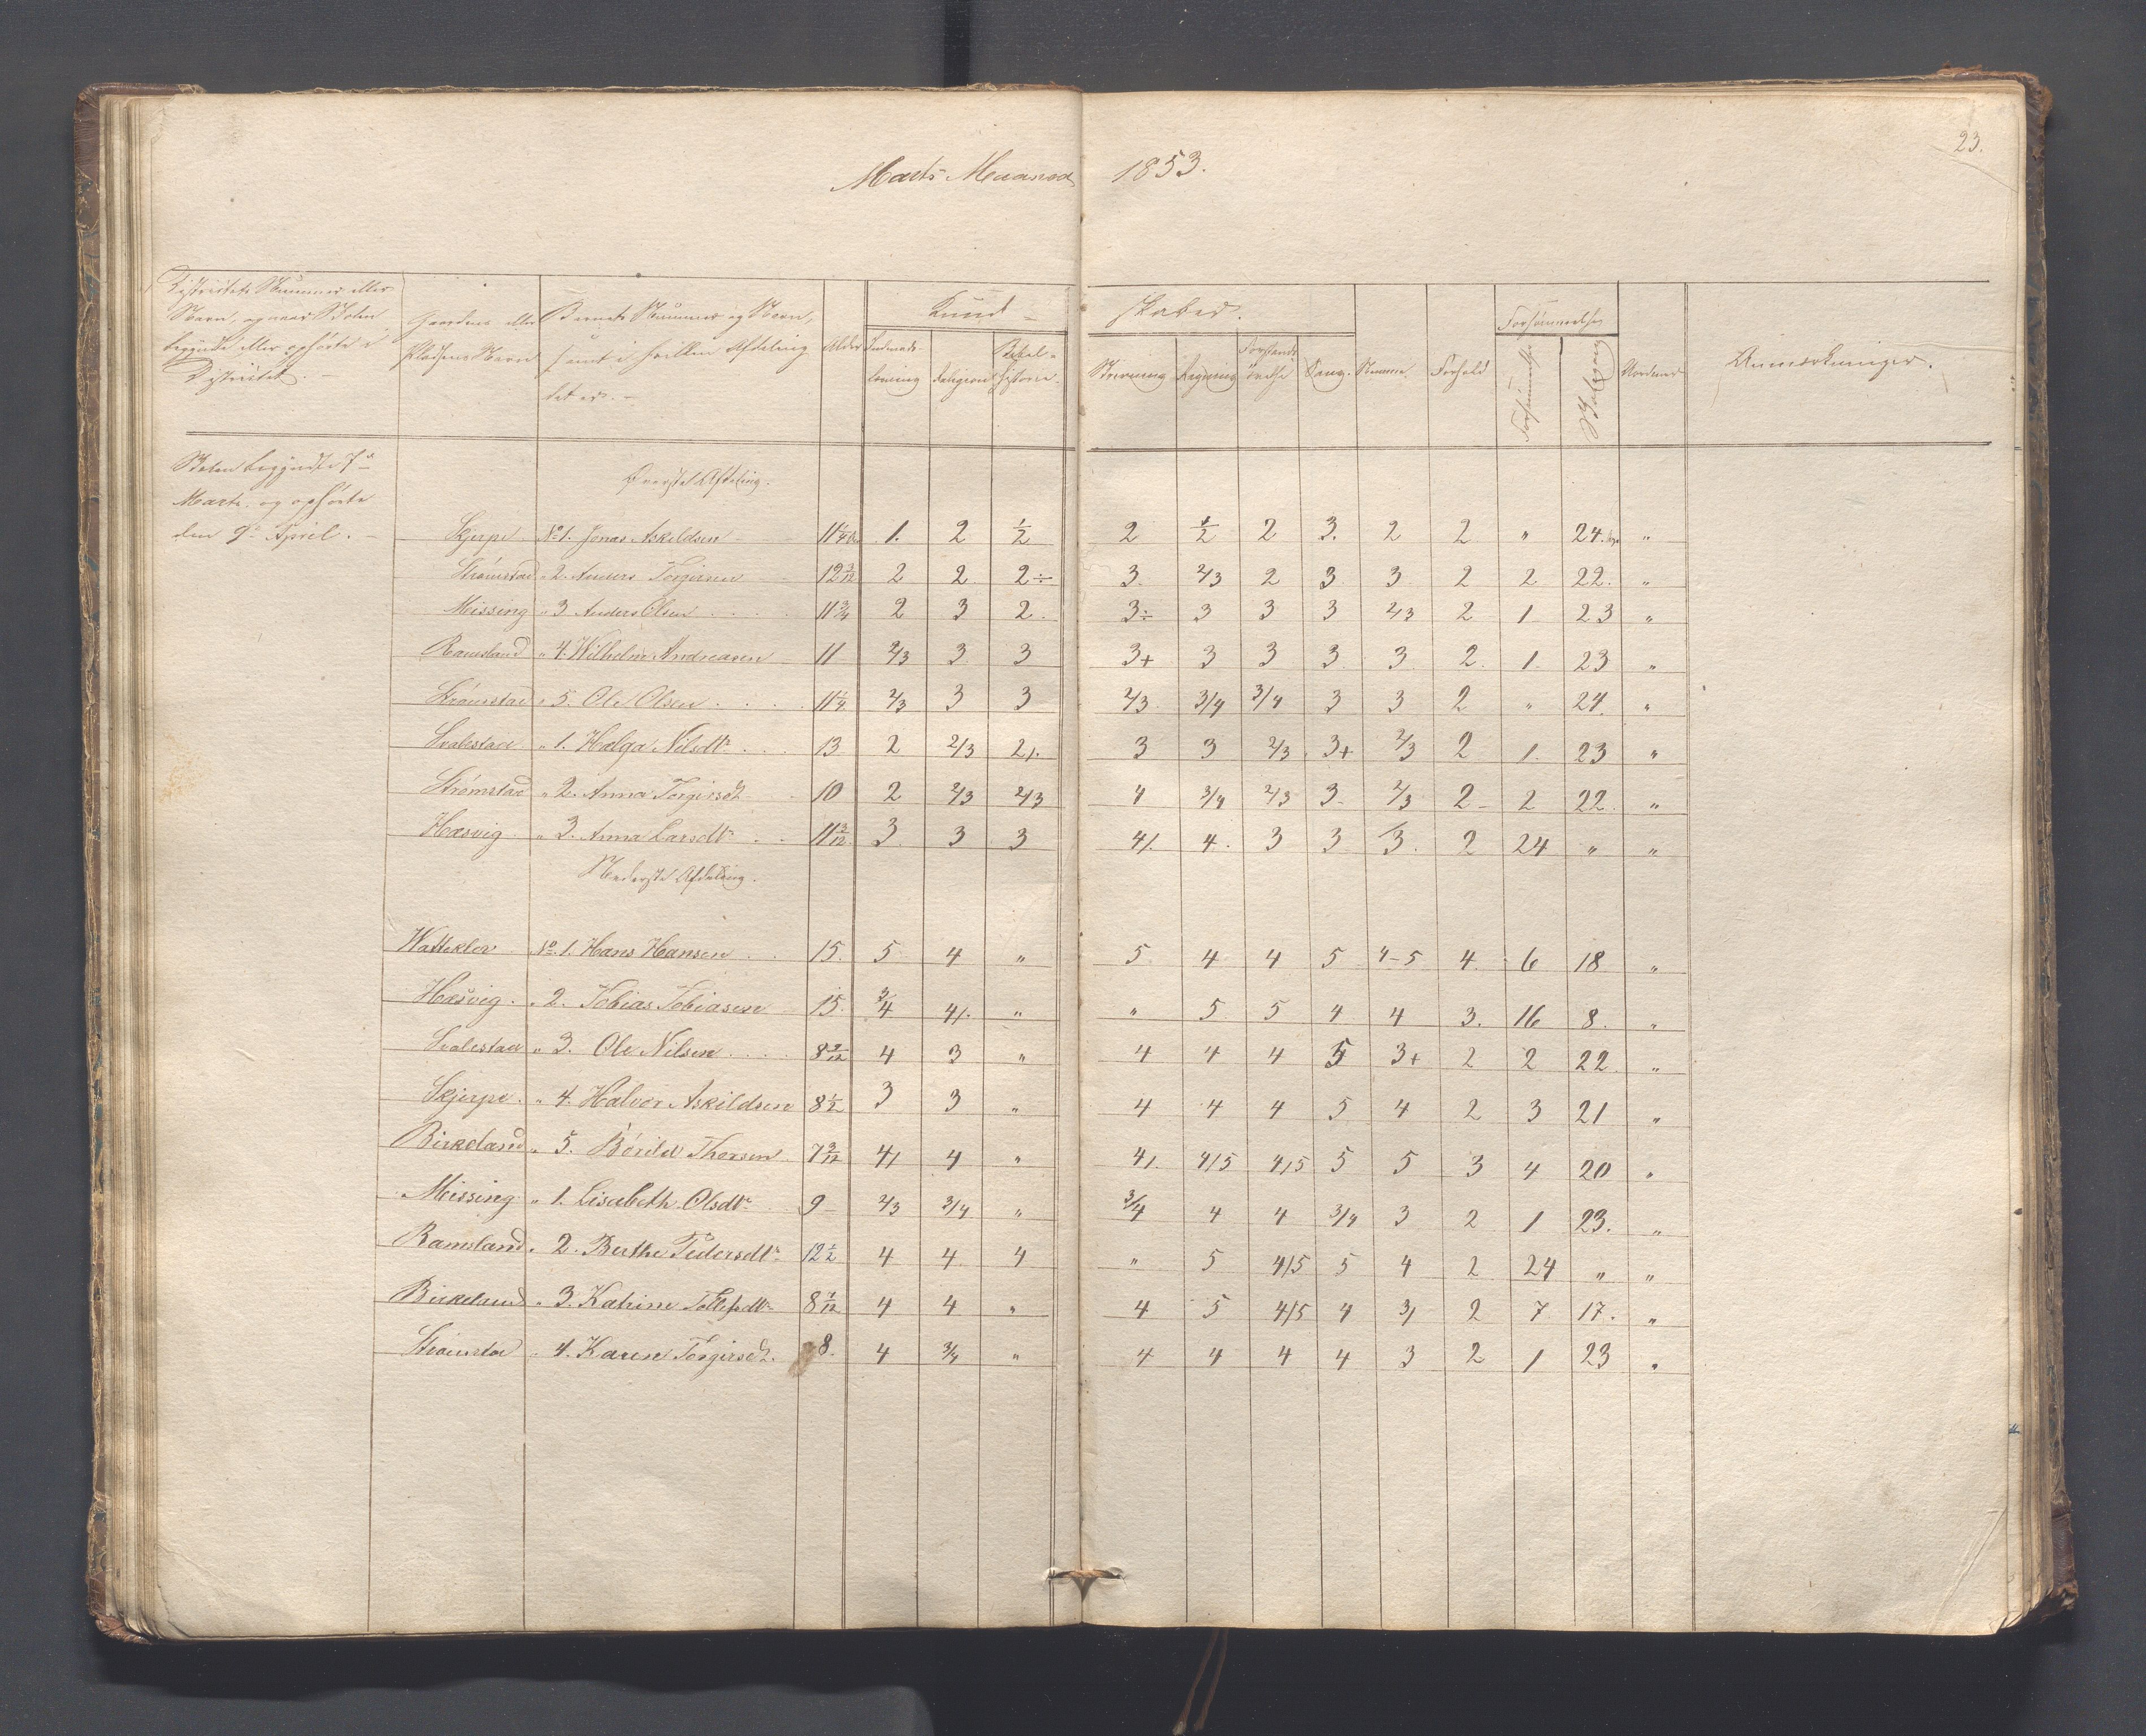 23.
Marts Maaned 1853.
Districtets Nummer eller
Navn, og naar Skolen
begyndte eller ophørte i
Districtet.
Gaardens eller
Pladsens Navn
Barnets Nummer og Navn,
samt i hvilken Afdeling
det er. –
Alder
Kund-
skaber.
Indenads-
læsning
Religion
Bibel-
historie.
Skrivning
Regning
Forstands
øvelse
Sang.
Stemme.
Forhold
Forsømmelse
Anmærkninger.
Skolen begyndte 7de
Marts og ophørte
den 9de April. –
Øverste Afdeling.
Skjerpe No 1. Jonas Askeldsen 11 1/4 1. 2 1/2 2 1/2 2 3. 2 2 " 24. "
Strømstad " 2. Anders Torgirsen 12 3/12 2 2 2÷ 3. 2/3 2 3 3 2 2 22. "
Meissing " 3 Anders Olsen 11 3/4 2 3 2. 3÷ 3 3 3 2/3 2 1 23 "
Ramsland " 4. Wilhelm Andreasen 11 2/3 3 3 3+ 3 3 3 3 2. 1. 23 "
Strømstad " 5. Ole Olsen 11 1/4 2/3 3 3 2/3 3/4 3/4 3 3 2 " 24. "
Svalestad " 1. Hælga Nilsdtr 13 2 2/3 2/. 3 3 2/3 3+ 2/3 2 1. 23 "
Strømstad " 2. Anna Torgirsdt 10 2 2/3 2/3 4 3/4 2/3 3 2/3 2 2 22. "
Hæsvig " 3. Anna Larsdtr 11 3/12 3 3 3 4/. 4. 3 3 3. 2 24 " "
Nederste Afdeling.
Watteklev No. 1. Hans Hansen 15. 5 4 " 5 4 4 5 4-5 4. 6 18 "
Hæsvig " 2. Tobias Tobiasen 15. 3/4 4/. " " 5 5 4 4 3. 16 8. "
Svalestad " 3. Ole Nilsen 8 9/12 4 3 " 4 4 4 5 3+ 2 2 22. "
Skjerpe " 4. Halvor Askildsen 8 1/2 3 3 " 4 4 4 5 4 2 3 21 "
Birkeland " 5. Børild Thorsen 7 3/12 4/ 4 " 4/. 4/5 4/5 5 5 3 4 20 "
Meissing " 1. Lisabeth Olsdtr 9 2/3 3/4 " 3/4 4 4 3/4 3 2 1 23. "
Ramsland " 2. Berthe Pedersdtr 12 1/2 4 4 4 " 5 4/5 5 4 2 24 " "
Birkeland " 3. Katrine Tollefsdtr 8 1/12 4 4 " 4 5 4/5 4 3/ 2 7 17. "
Strømstad " 4. Karen Torgirsdt. 8. 4 3/4 " 4 4 4 4 3 2 1 23 "